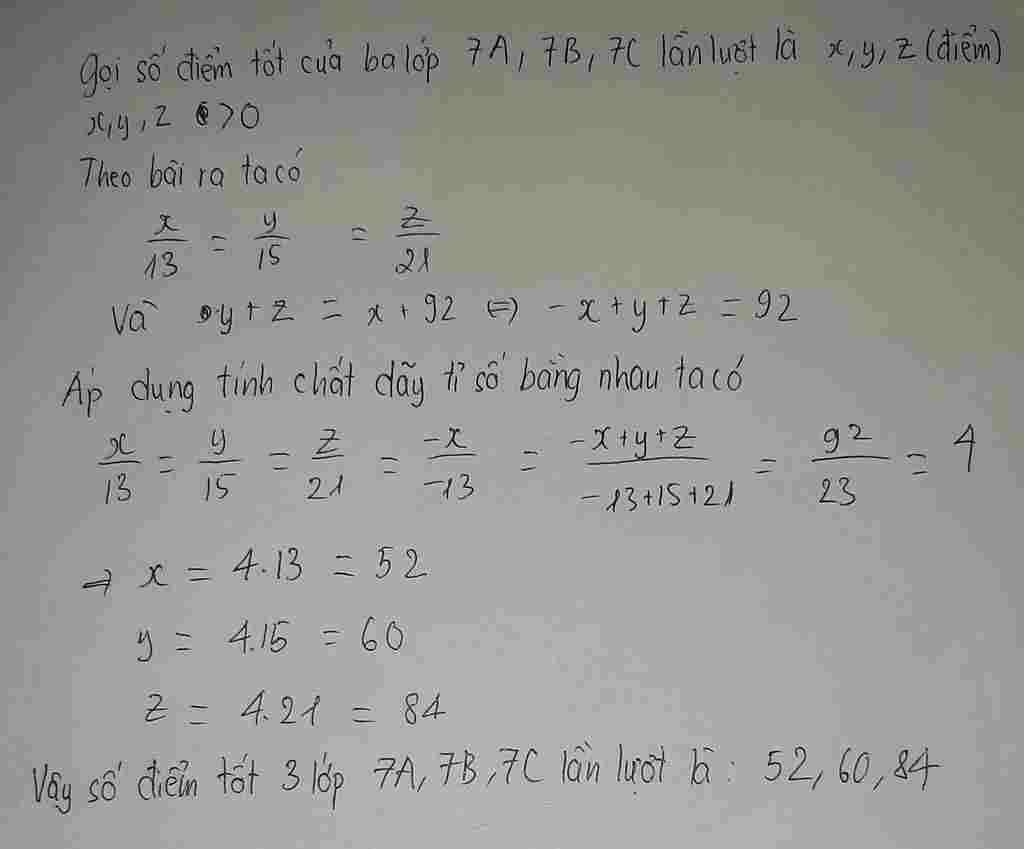 Gọi số điểm tốt của ba lớp 7A, 7B, 7C lần lượt là x, y, z (điểm)
x, y, z >0
Theo bài ra ta có
x/13 = y/15 = z/21
Và y + z = x + 92 <=> -x + y + z = 92
Áp dụng tính chất dãy tỉ số bằng nhau ta có
x/13 = y/15 = z/21 = -x/-13 = -x+y+z/-13+15+21 = 92/23 = 4
=> x = 4.13 = 52
y = 4.15 = 60
z = 4.21 = 84
Vậy số điểm tốt 3 lớp 7A, 7B, 7C lần lượt là : 52, 60, 84